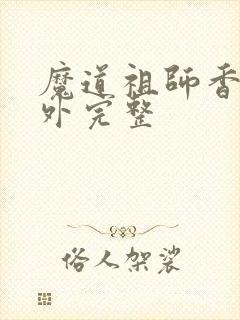 魔道祖師香
外完整
俗人架裟